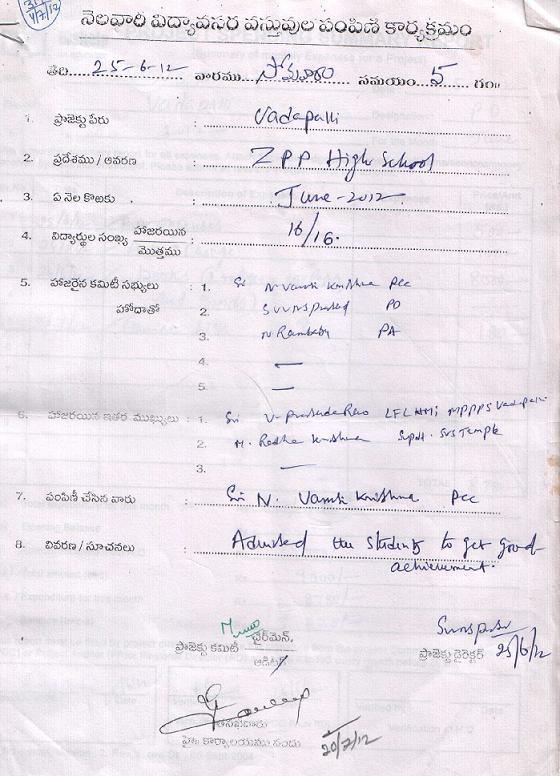 4/7/12
నెలవారి విద్యావసర వస్తువుల పంపిణి కార్యక్రమం
తేది... 25-6-12 వారము... సోమవారం సమయం... 5 గం॥
1. ప్రాజెక్టు పేరు : Vadapalli
2. ప్రదేశము / ఆవరణ : ZPP High School
3. ఏ నెల కొఱకు : June-2012
4. విద్యార్థుల సంఖ్య హాజరయిన / మొత్తము : 16/16.
5. హాజరైన కమిటీ సభ్యులు : 1. Sri N Vamsi Krishna PCC
హోదాతో 2. SVVNS Prasad PO
3. N Rambabu PA
4. —
5. —
6. హాజరయిన ఇతర ముఖ్యులు : 1. Sri V. Prasada Rao LFL HM; MPPPS Vadapalli
2. M. Radha Krishna Supdt. SVS Temple
3. —
7. పంపిణీ చేసిన వారు : Sri N. Vamsi Krishna PCC
8. వివరణ / సూచనలు : Advised the students to get good
achievement.
ప్రాజెక్టు కమిటీ చైర్‌మెన్,
ఆడిటర్
ప్రాజెక్టు డైరెక్టర్ 25/6/12
హై॥ కార్యాలయము నందు 20/7/12